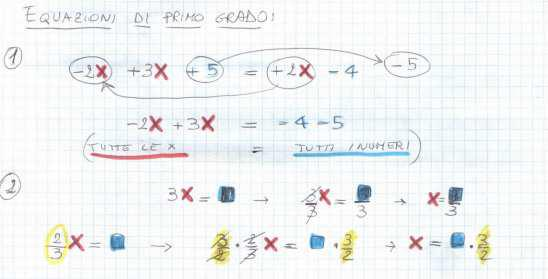 EQUAZIONI DI PRIMO GRADO:
1
-2x +3x +5 = +2x -4 -5
-2x +3x = -4 -5
(TUTTE LE X = TUTTI I NUMERI)
2
3x = ■ → 3/3 x = ■/3 → x = ■/3
2/3 x = ■ → 3/2 · 2/3 x = ■ · 3/2 → x = ■ · 3/2